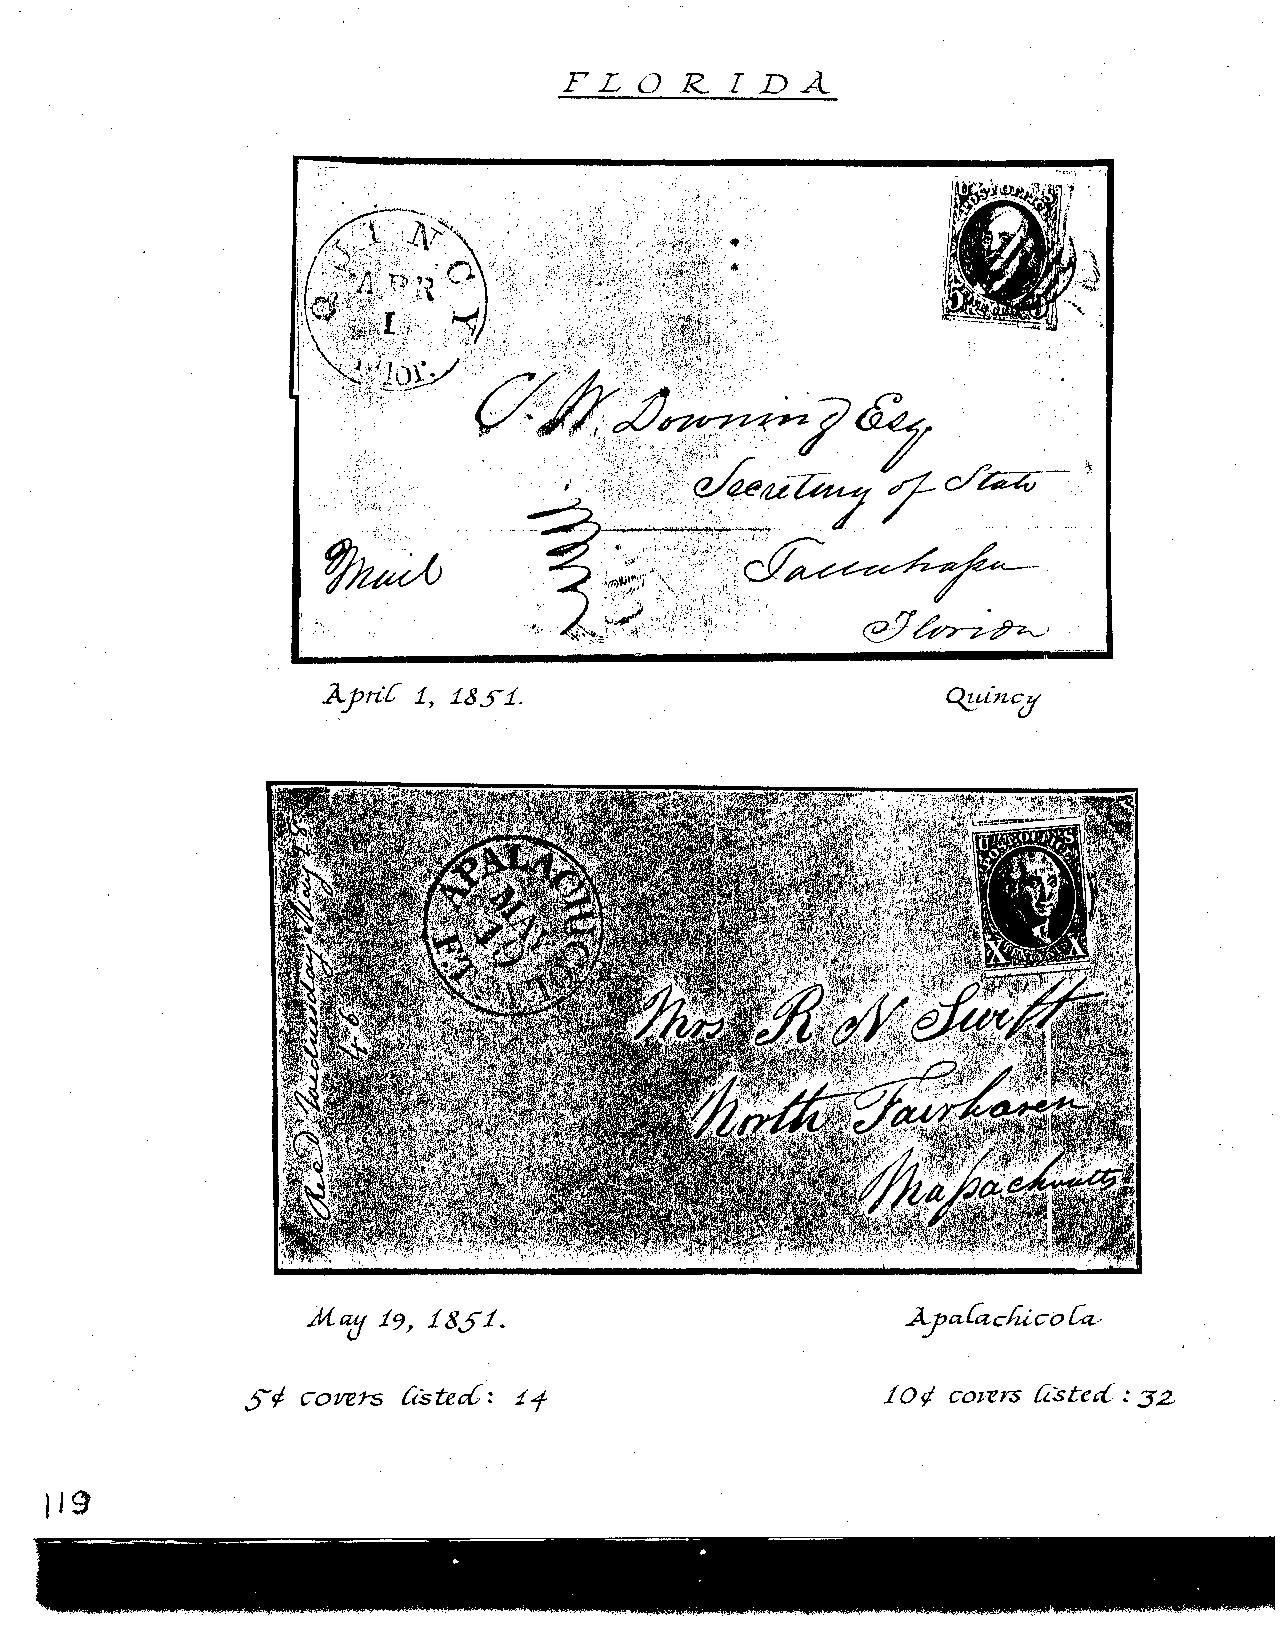 FLORIDA
QUINCY
APR
1
Flor.
5 5
C. W. Downing Esq.
Secretary of State
Mail
Tallahassee
Florida
April 1, 1851. Quincy
APALACHICOLA
MAY
19
F.T
X X
Rec'd Wednesday May 28
Mrs R N Swift
North Fairhaven
Massachusetts
May 19, 1851. Apalachicola
5¢ covers listed: 14 10¢ covers listed: 32
119